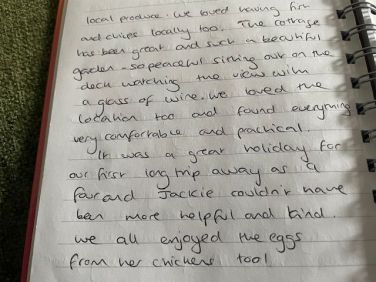 local produce. We loved having fish
and chips locally too. The cottage
has been great and such a beautiful
garden - so peaceful sitting out on the
deck watching the view with
a glass of wine. We loved the
location too and found everything
very comfortable and practical.
It was a great holiday for
our first long trip away as a
four and Jackie couldn't have
been more helpful and kind.
We all enjoyed the eggs
from her chickens too!